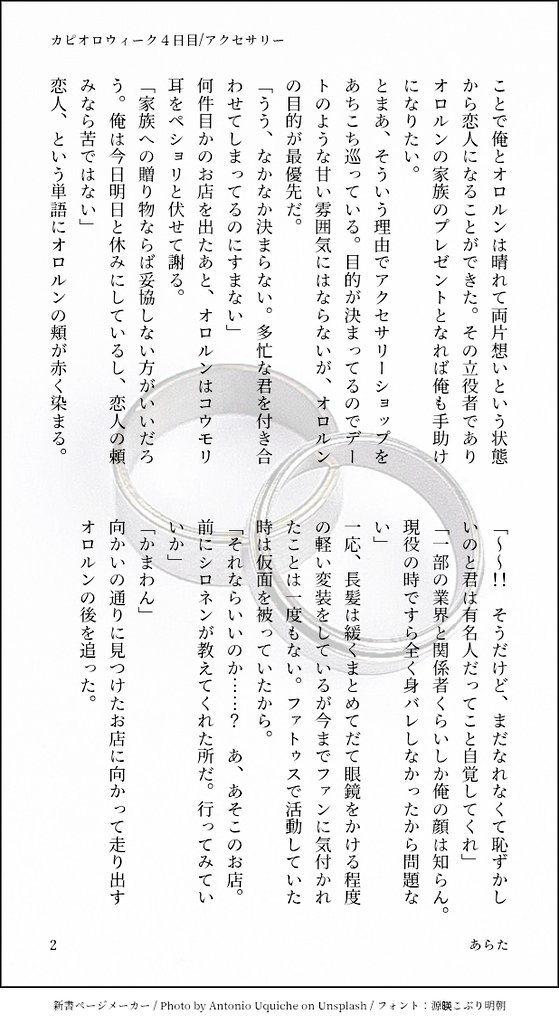 カピオロウィーク４日目/アクセサリー
ことで俺とオロルンは晴れて両片想いという状態
から恋人になることができた。その立役者であり
オロルンの家族のプレゼントとなれば俺も手助け
になりたい。
とまあ、そういう理由でアクセサリーショップを
あちこち巡っている。目的が決まってるのでデー
トのような甘い雰囲気にはならないが、オロルン
の目的が最優先だ。
「うう、なかなか決まらない。多忙な君を付き合
わせてしまってるのにすまない」
何件目かのお店を出たあと、オロルンはコウモリ
耳をペショリと伏せて謝る。
「家族への贈り物ならば妥協しない方がいいだろ
う。俺は今日明日と休みにしているし、恋人の頼
みなら苦ではない」
恋人、という単語にオロルンの頬が赤く染まる。
「〜〜!!　そうだけど、まだなれなくて恥ずかし
いのと君は有名人だってこと自覚してくれ」
「一部の業界と関係者くらいしか俺の顔は知らん。
現役の時ですら全く身バレしなかったから問題な
い」
一応、長髪は緩くまとめてだて眼鏡をかける程度
の軽い変装をしているが今までファンに気付かれ
たことは一度もない。ファトゥスで活動していた
時は仮面を被っていたから。
「それならいいのか……？　あ、あそこのお店。
前にシロネンが教えてくれた所だ。行ってみてい
いか」
「かまわん」
向かいの通りに見つけたお店に向かって走り出す
オロルンの後を追った。
2
あらた
新書ページメーカー / Photo by Antonio Uquiche on Unsplash / フォント：源暎こぶり明朝